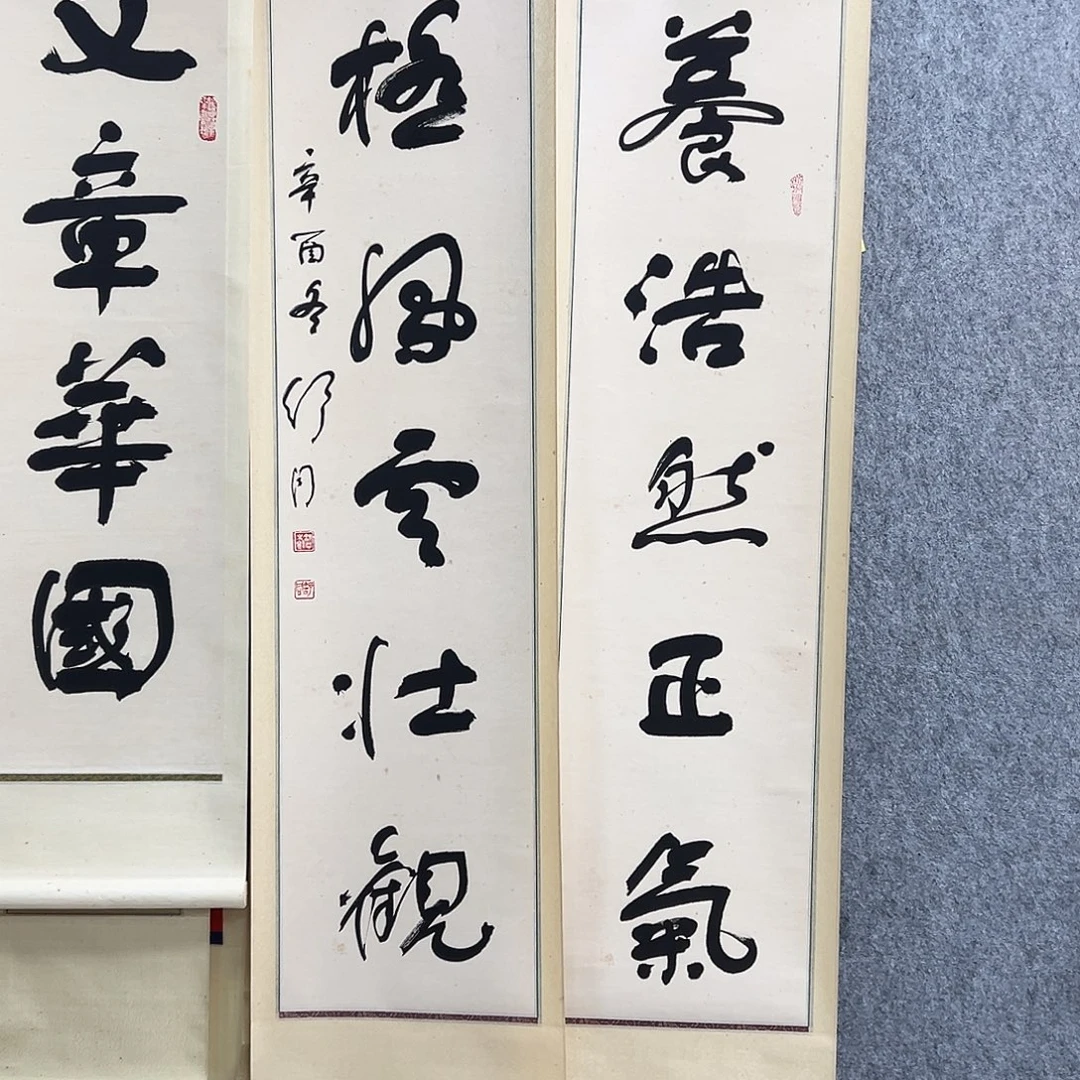 養浩然正氣
極風雲壯觀
辛酉冬 舒同
文章華國